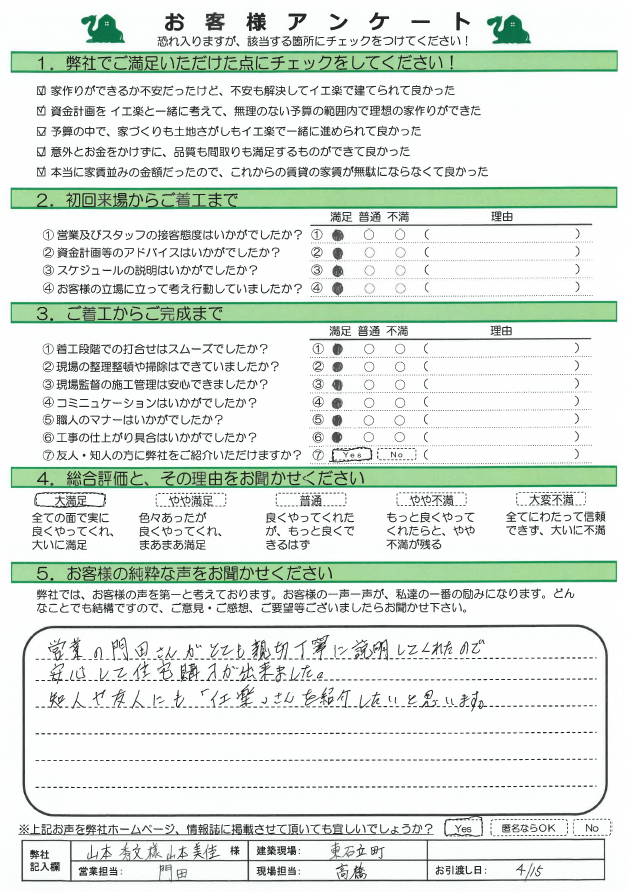 お客様アンケート
恐れ入りますが、該当する箇所にチェックをつけてください！
１．弊社でご満足いただけた点にチェックをしてください！
☑ 家作りができるか不安だったけど、不安も解決してイエ楽で建てられて良かった
☑ 資金計画を イエ楽と一緒に考えて、無理のない予算の範囲内で理想の家作りができた
☑ 予算の中で、家づくりも土地さがしもイエ楽で一緒に進められて良かった
☑ 意外とお金をかけずに、品質も間取りも満足するものができて良かった
☑ 本当に家賃並みの金額だったので、これからの賃貸の家賃が無駄にならなくて良かった
２．初回来場からご着工まで
満足 普通 不満 理由
①営業及びスタッフの接客態度はいかがでしたか？ ① ● ○ ○ （ ）
②資金計画等のアドバイスはいかがでしたか？ ② ● ○ ○ （ ）
③スケジュールの説明はいかがでしたか？ ③ ● ○ ○ （ ）
④お客様の立場に立って考え行動していましたか？ ④ ● ○ ○ （ ）
３．ご着工からご完成まで
満足 普通 不満 理由
①着工段階での打合せはスムーズでしたか？ ① ● ○ ○ （ ）
②現場の整理整頓や掃除はできていましたか？ ② ● ○ ○ （ ）
③現場監督の施工管理は安心できましたか？ ③ ● ○ ○ （ ）
④コミニュケーションはいかがでしたか？ ④ ● ○ ○ （ ）
⑤職人のマナーはいかがでしたか？ ⑤ ● ○ ○ （ ）
⑥工事の仕上がり具合はいかがでしたか？ ⑥ ● ○ ○ （ ）
⑦友人・知人の方に弊社をご紹介いただけますか？ ⑦ Yes No （ ）
４．総合評価と、その理由をお聞かせください
大満足 やや満足 普通 やや不満 大変不満
全ての面で実に 色々あったが 良くやってくれた もっと良くやって 全てにわたって信頼
良くやってくれ、 良くやってくれ、 が、もっと良くで くれたらと、やや できず、大いに不満
大いに満足 まあまあ満足 きるはず 不満が残る
５．お客様の純粋な声をお聞かせください
弊社では、お客様の声を第一と考えております。お客様の一声一声が、私達の一番の励みになります。どん
なことでも結構ですので、ご意見・ご感想、ご要望等ございましたらお聞かせ下さい。
営業の門田さんがとても親切丁寧に説明してくれたので
安心して住宅購入が出来ました。
知人や友人にも「イエ楽」さんを紹介したいと思います。
※上記お声を弊社ホームページ、情報誌に掲載させて頂いても宜しいでしょうか？ Yes 匿名ならOK No
弊社 山本 秀文様 山本美佳 様 建築現場： 東石立町
記入欄 営業担当： 門田 現場担当： 高橋 お引渡し日： 4/15